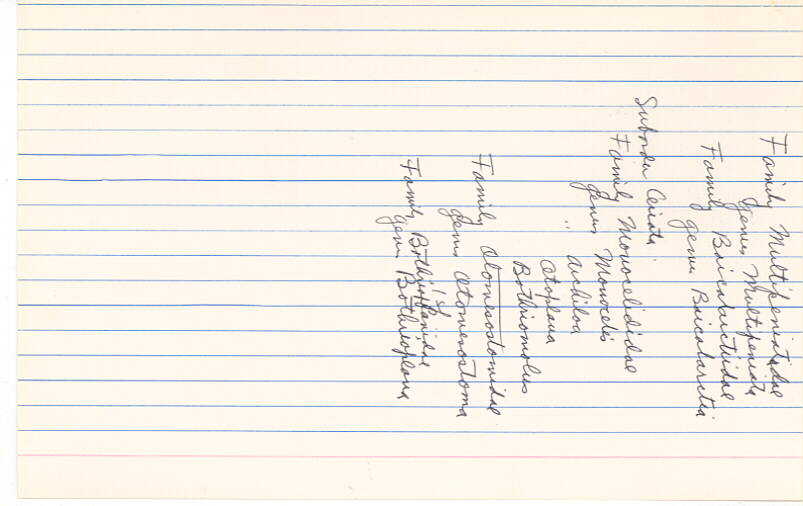 Family Multipeniatidae
genus Multipeniata
Family Baicalarctiidae
genus Baicalarctia
Suborder Crista
Family Monocelididae
genus Monocelis
" Archiloa
Otoplana
Bothriomolus
Family Otomesostomidae
genus Otomesostoma
Family Bothrioplanidae
genus Bothrioplana